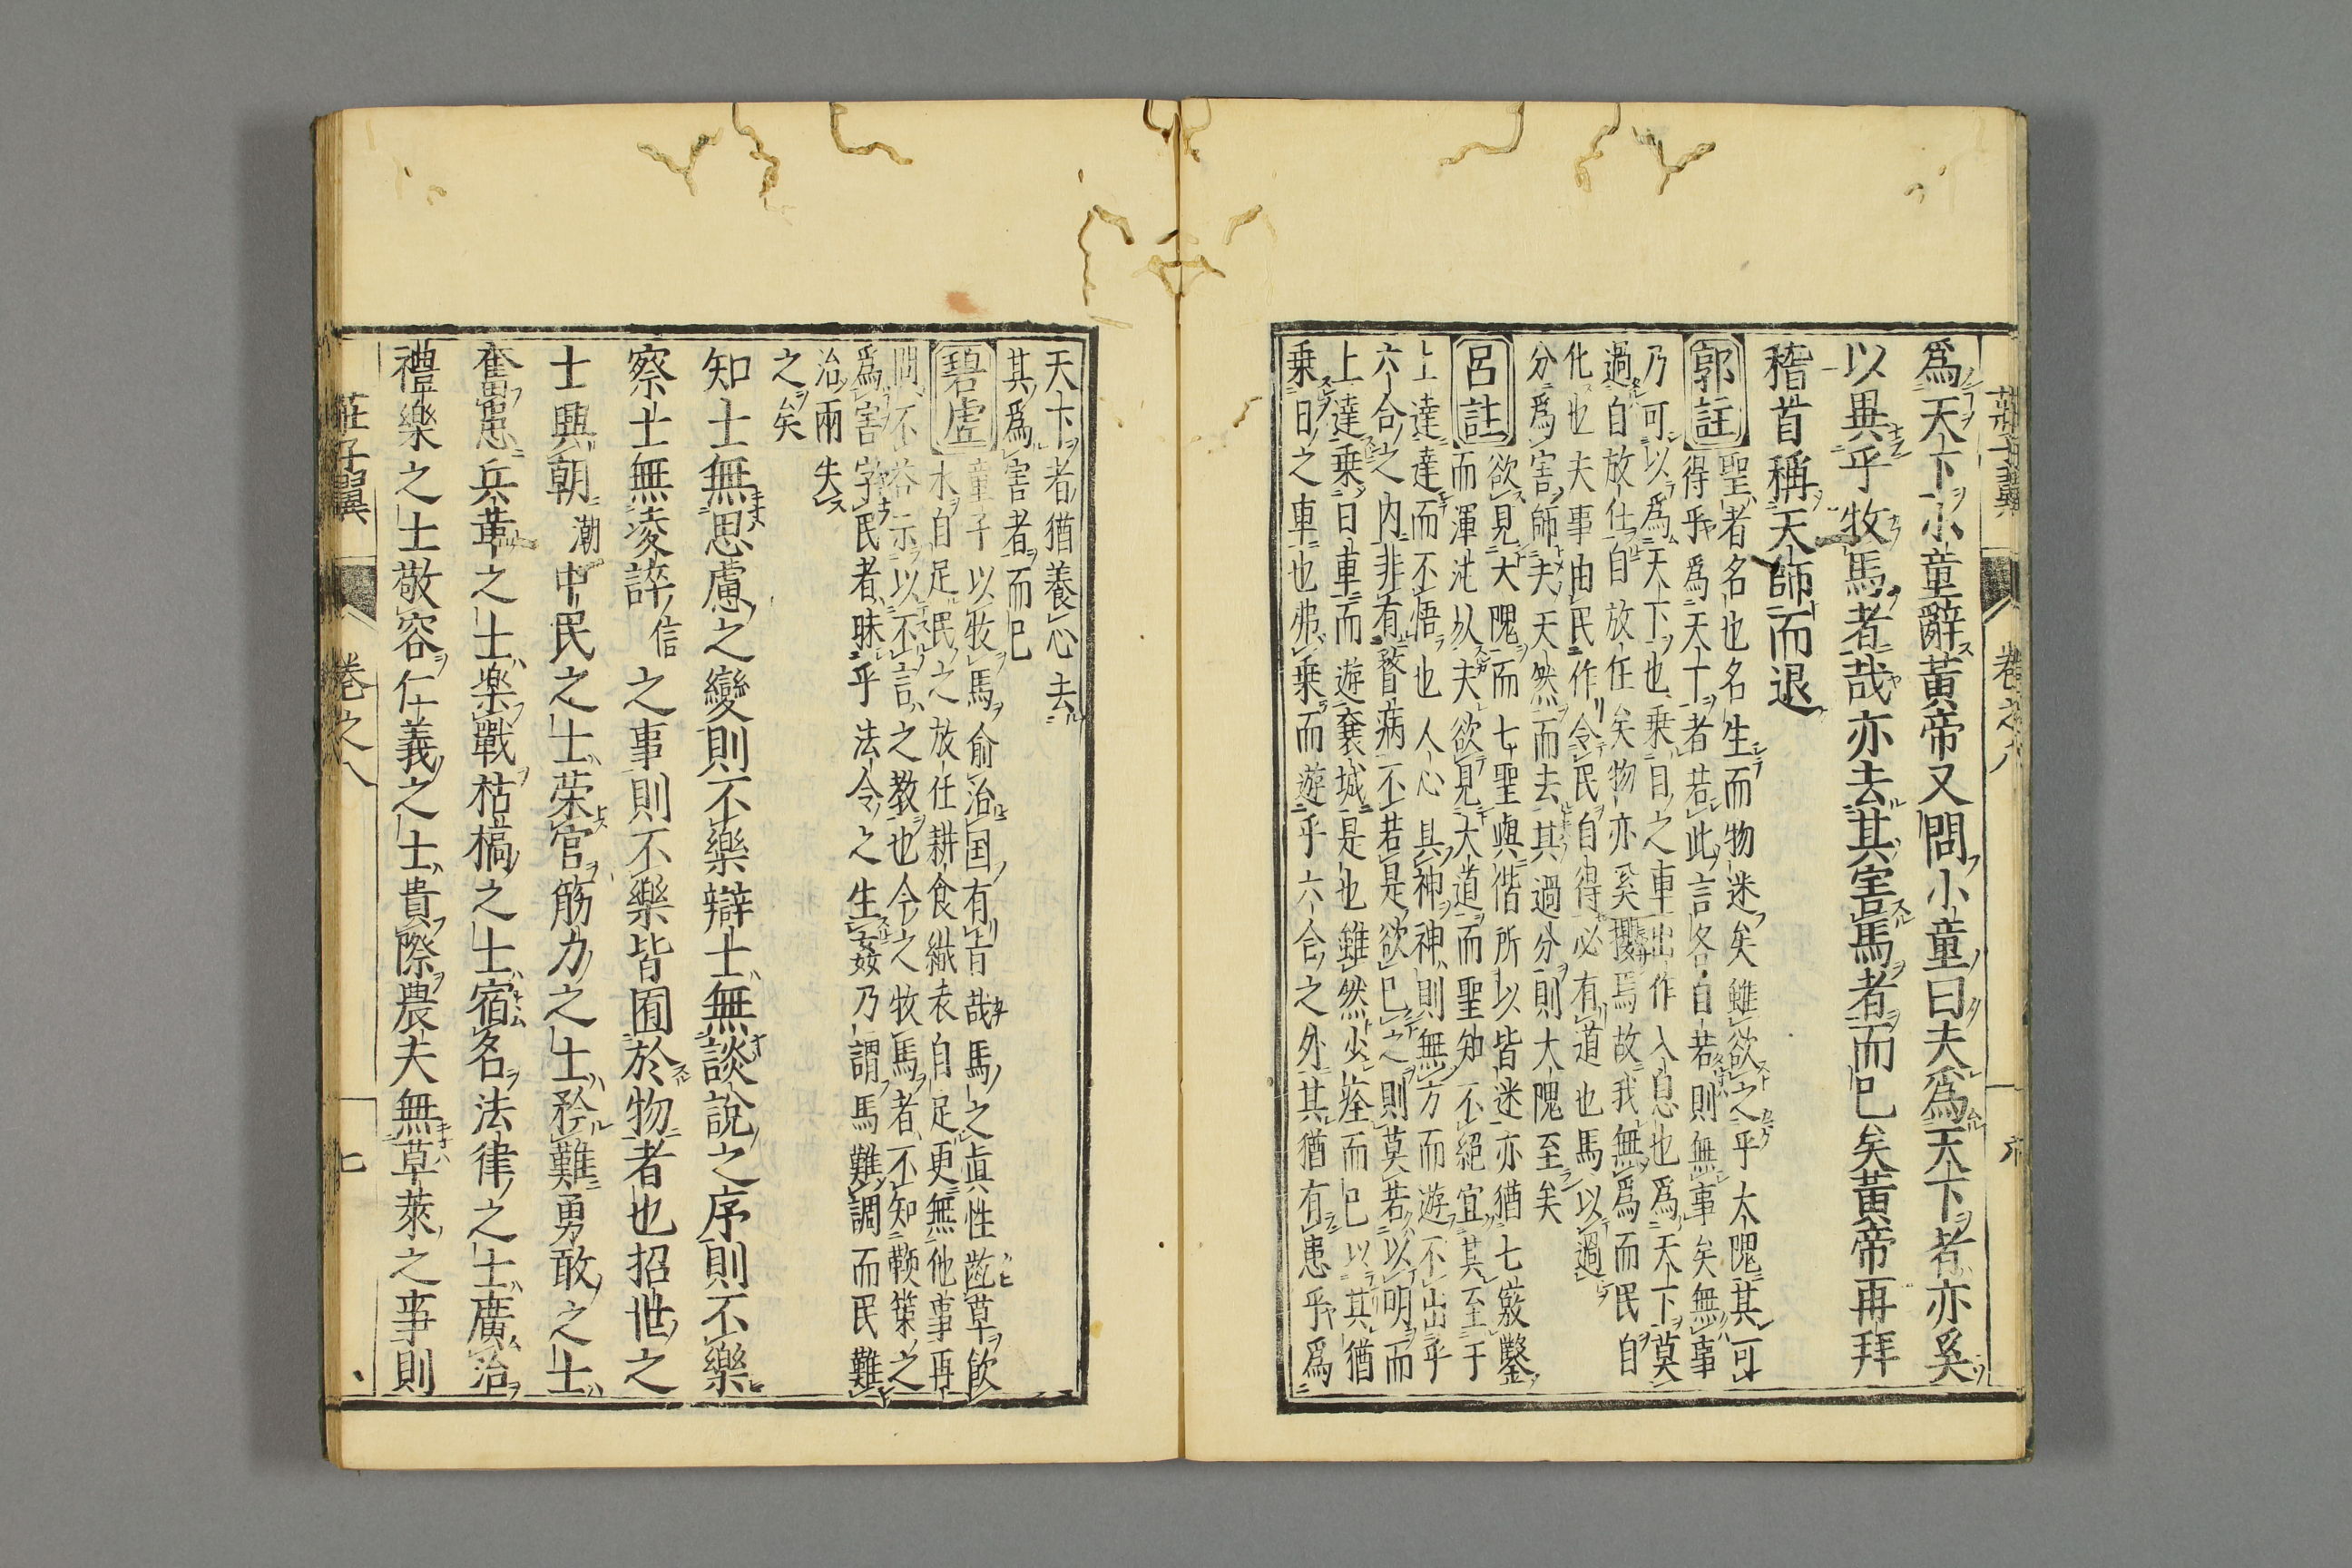 莊子翼 卷之八
爲天下小童辭黃帝又問小童曰夫爲天下者亦奚
以異乎牧馬者哉亦去其害馬者而已矣黃帝再拜
稽首稱天師而退
郭註
聖者名也名生而物迷矣雖欲之乎大隗其可
得乎爲天下者若此言各自若則無事矣無事
乃可以爲天下也乗日之車出作入息也爲天下莫
過自放任自放任矣物亦奚攖焉故我無爲而民自
化也夫事由民作令民自得必有道也馬以過
分爲害師夫天然而去其過分則大隗至矣
呂註
欲見大隗而七聖與偕所以皆迷亦猶七竅鑿
而渾沌以夫欲見大道而聖知不絕宜其至于
上達達而不悟也人心具神神則無方而遊不出乎
六合之内非有瞀病不若是欲已之則莫若以明而
上達乗日車而遊襄城是也雖然少痊而已以其猶
乗日之車也弗乗而遊乎六合之外其猶有患乎爲
天下者猶養心去
其爲害者而已
碧虛
童子以牧馬俞治国有旨哉馬之眞性齕草飮
水自足民之放任耕食織衣自足更無他事再
問不答示以不言之教也令之牧馬者不知鞭策之
爲害字民者昧乎法令之生姦乃謂馬難調而民難
治兩失
之矣
知士無思慮之變則不樂辯士無談說之序則不樂
察士無凌誶信之事則不樂皆囿於物者也招世之
士興朝潮中民之士荣官筋力之士矜難勇敢之士
奮患兵革之士楽戰枯槁之士宿名法律之士廣治
禮樂之士敬容仁義之士貴際農夫無草萊之事則
莊子翼 卷之八 七